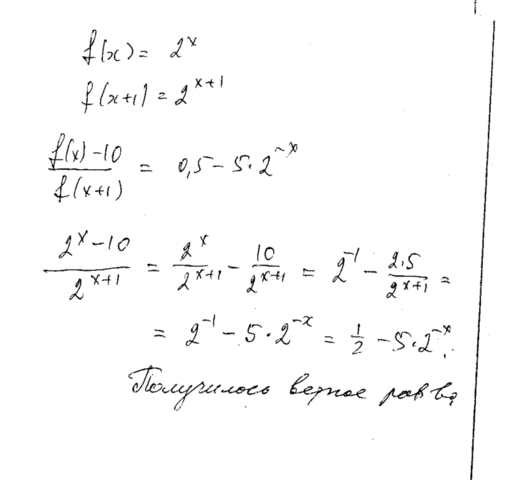 f(x) = 2^x
f(x+1) = 2^{x+1}
\frac{f(x)-10}{f(x+1)} = 0,5 - 5 \cdot 2^{-x}
\frac{2^x-10}{2^{x+1}} = \frac{2^x}{2^{x+1}} - \frac{10}{2^{x+1}} = 2^{-1} - \frac{2 \cdot 5}{2^{x+1}} =
= 2^{-1} - 5 \cdot 2^{-x} = \frac{1}{2} - 5 \cdot 2^{-x}.
Получилось верное рав-во